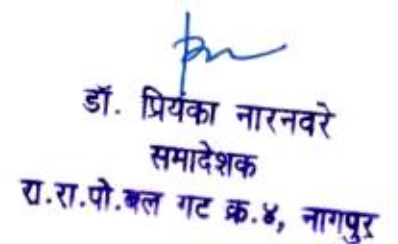 डॉ. प्रियंका नारनवरे
समादेशक
रा.रा.पो.बल गट क्र.४, नागपुर